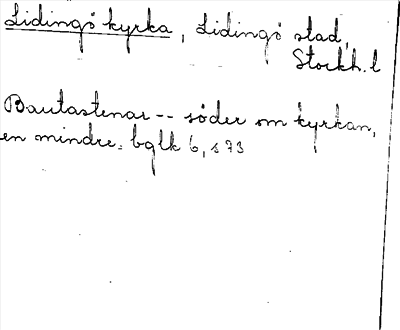 Lidingö kyrka, Lidingö stad,
Stockh. l
Bautastenar -- söder om kyrkan,
en mindre. bglk 6, s 73